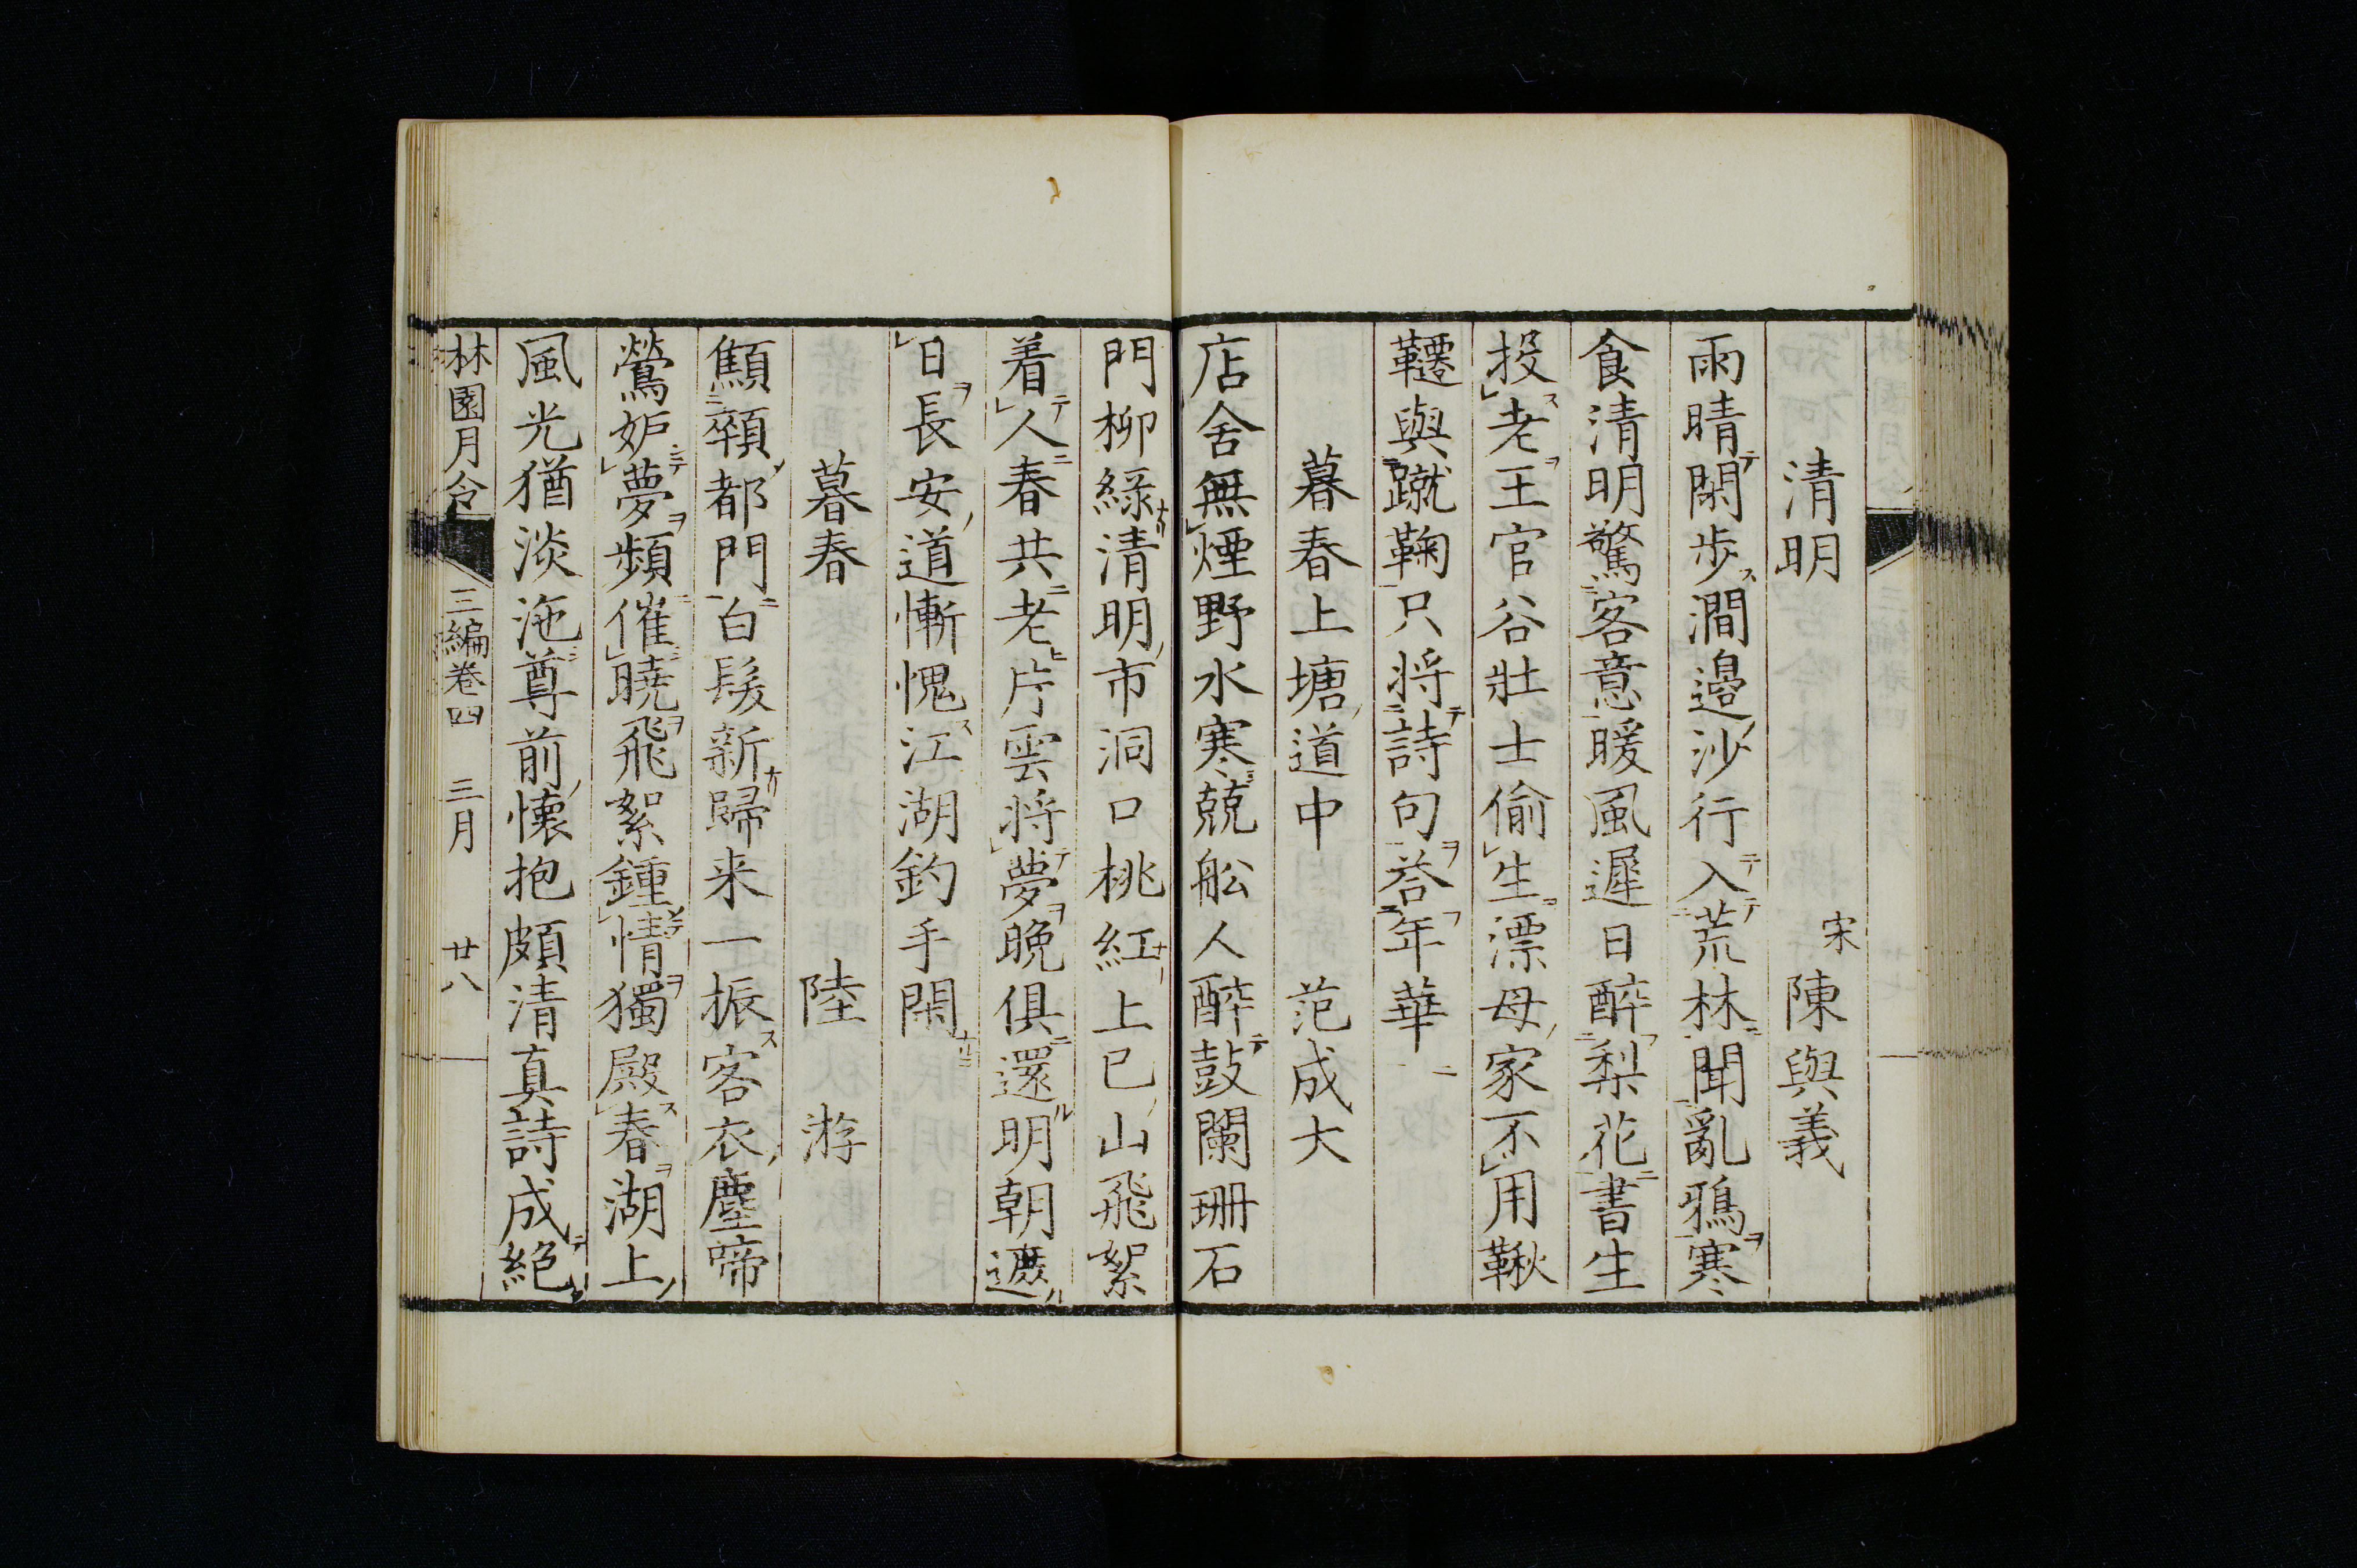 清明　宋　陳與義
雨晴閑歩澗邉沙行入荒林聞亂鴉寒
食清明驚客意暖風遲日醉梨花書生
投老王官谷壯士偷生漂母家不用鞦
韆與蹴鞠只将詩句荅年華
暮春上塘道中　范成大
店舍無煙野水寒競舩人醉鼓闌珊石
門柳綠清明市洞口桃紅上巳山飛絮
着人春共老片雲将夢晚俱還明朝遮
日長安道慚愧江湖釣手閑
暮春　陸游
顦顇都門白髮新歸来一振客衣塵啼
鶯妒夢頻催曉飛絮鍾情獨殿春湖上
風光猶淡沲尊前懐抱頗清真詩成絕
林園月令　三編卷四　三月　廿八